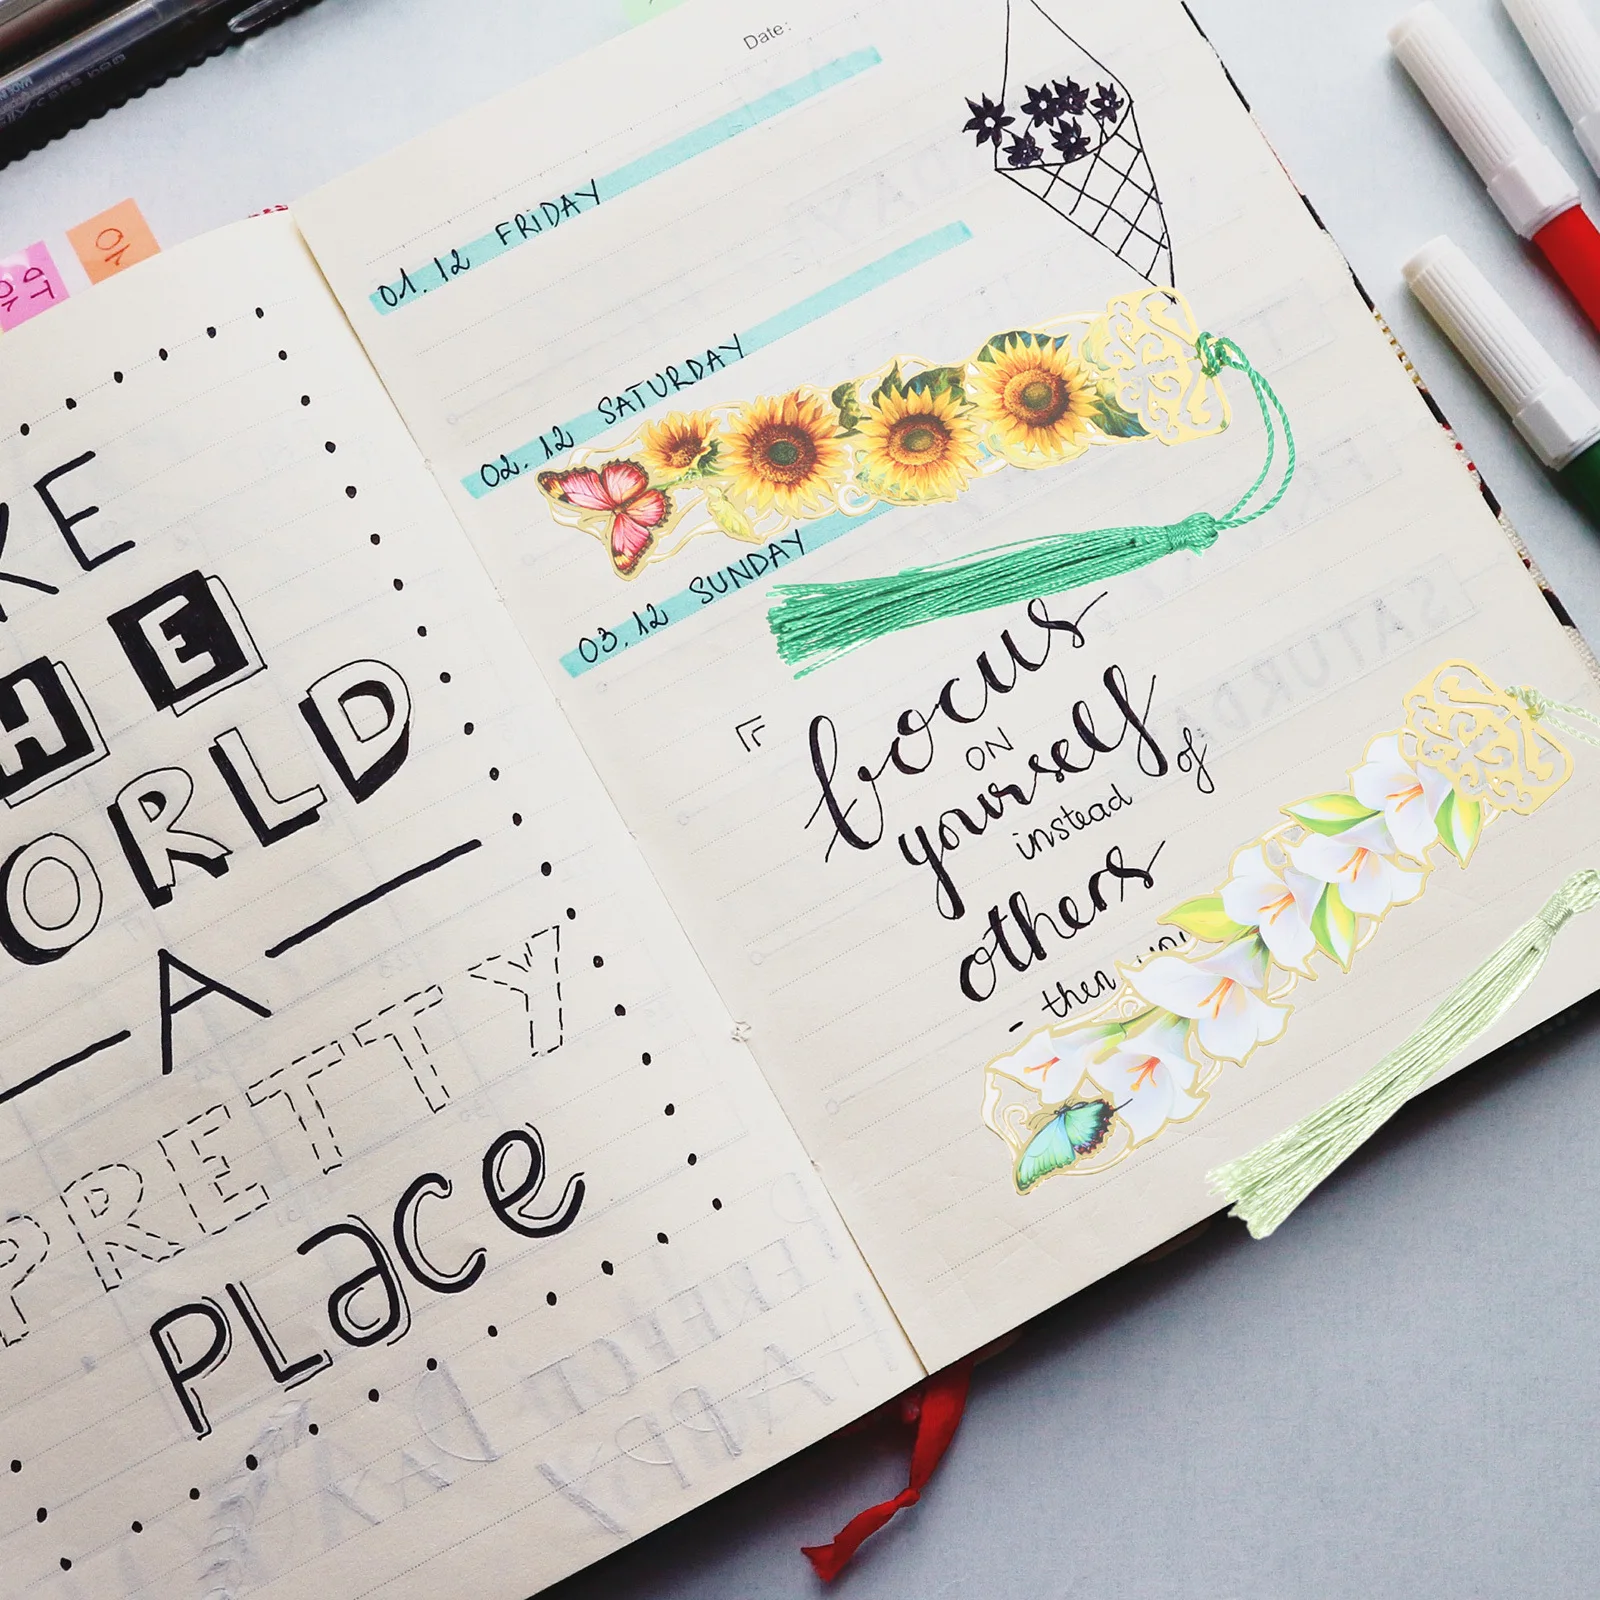 KE
THE
ORLD
A
PRETTY
PLace
Date:
01.12 FRIDAY
02.12 SATURDAY
03.12 SUNDAY
focus
ON
yourself
instead of
others
- then